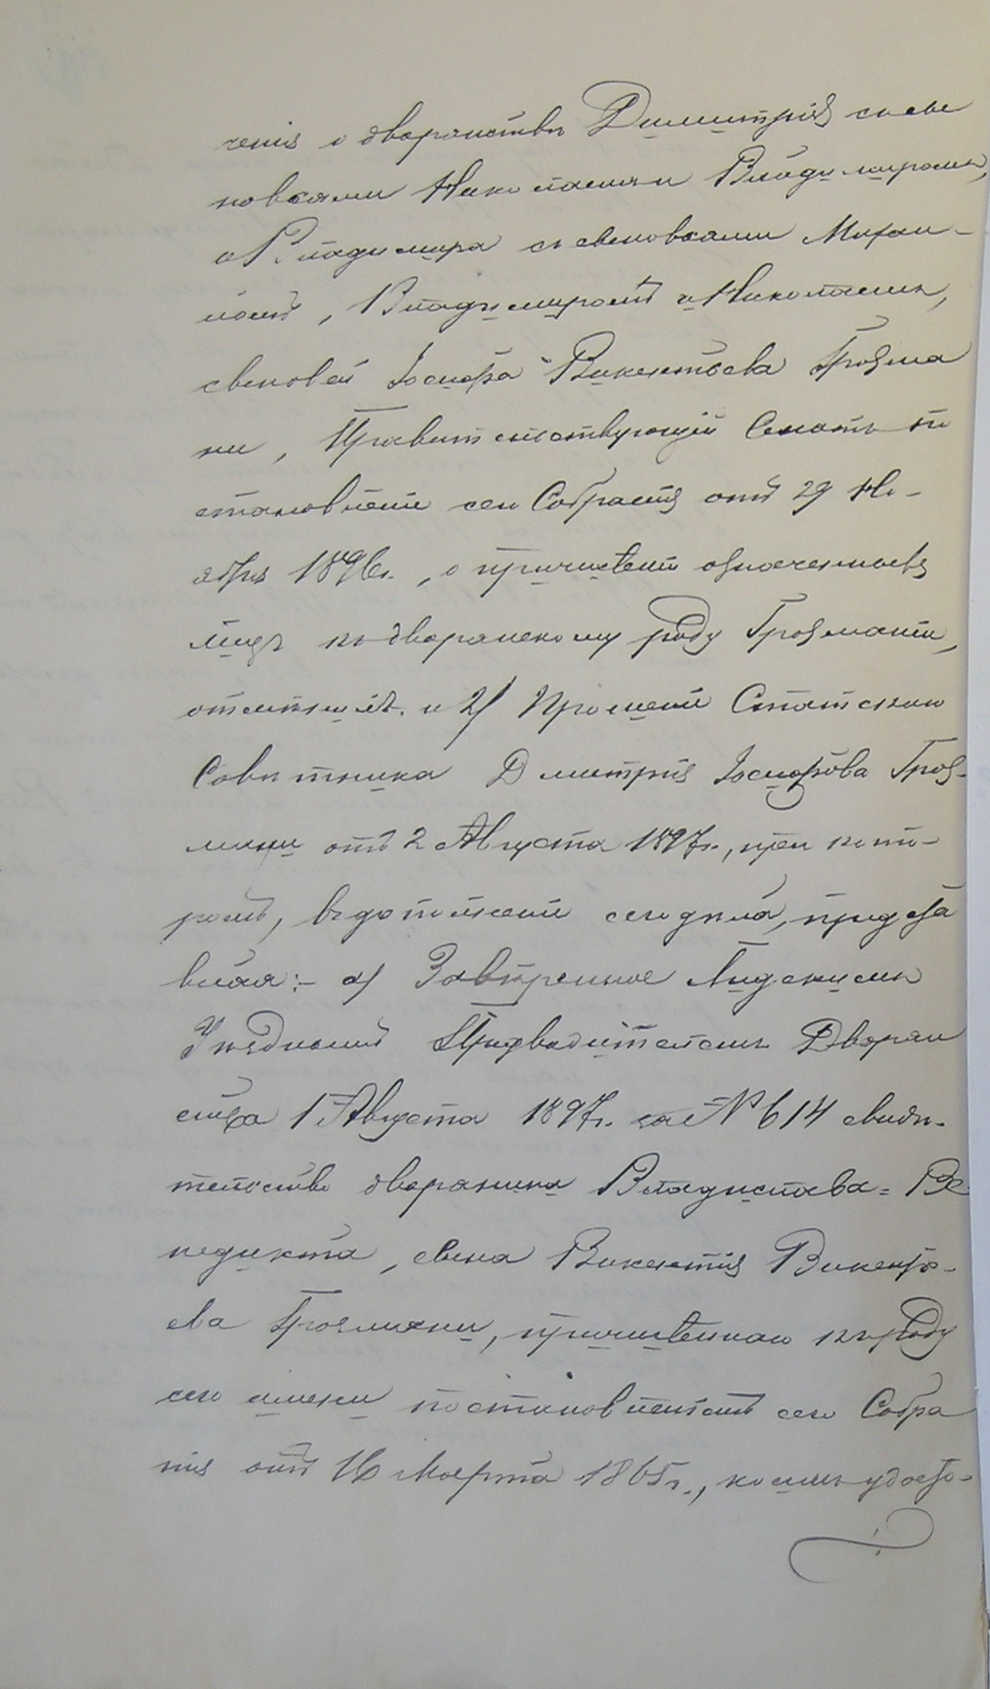 ченія о дворянствѣ Димитрія съ сы
новьями Николаемъ и Владимиромъ,
и Владимира съ сыновьями Михаи-
ломъ, Владимиромъ и Николаемъ,
сыновей Іосифа Викентьева Гроzма
ни, Правительствующій Сенатъ по
становленіе сего Собранія отъ 29 Но-
ября 1896г., о причисленіи означенныхъ
лицъ къ дворянскому роду Грозмани,
отмѣнилъ. и 2/ Прошеніе Статскаго
Совѣтника Дмитрія Іосифова Гроз-
мани отъ 2 Августа 1897г., при кото-
ромъ, въ дополненіе сего дѣла, предста
вилъ:- а) Завѣренное Лидскимъ
Уѣзднымъ Предводителемъ Дворян
ства 1 Августа 1897г. за № 614 свидѣ-
тельство дворянина Владислава-Бе
недикта, сына Викентія Викентье-
ва Грозмани, причисленнаго къ роду
сего имени постановленіемъ сего Собра
нія отъ 16 Марта 1865г., коимъ удосто-